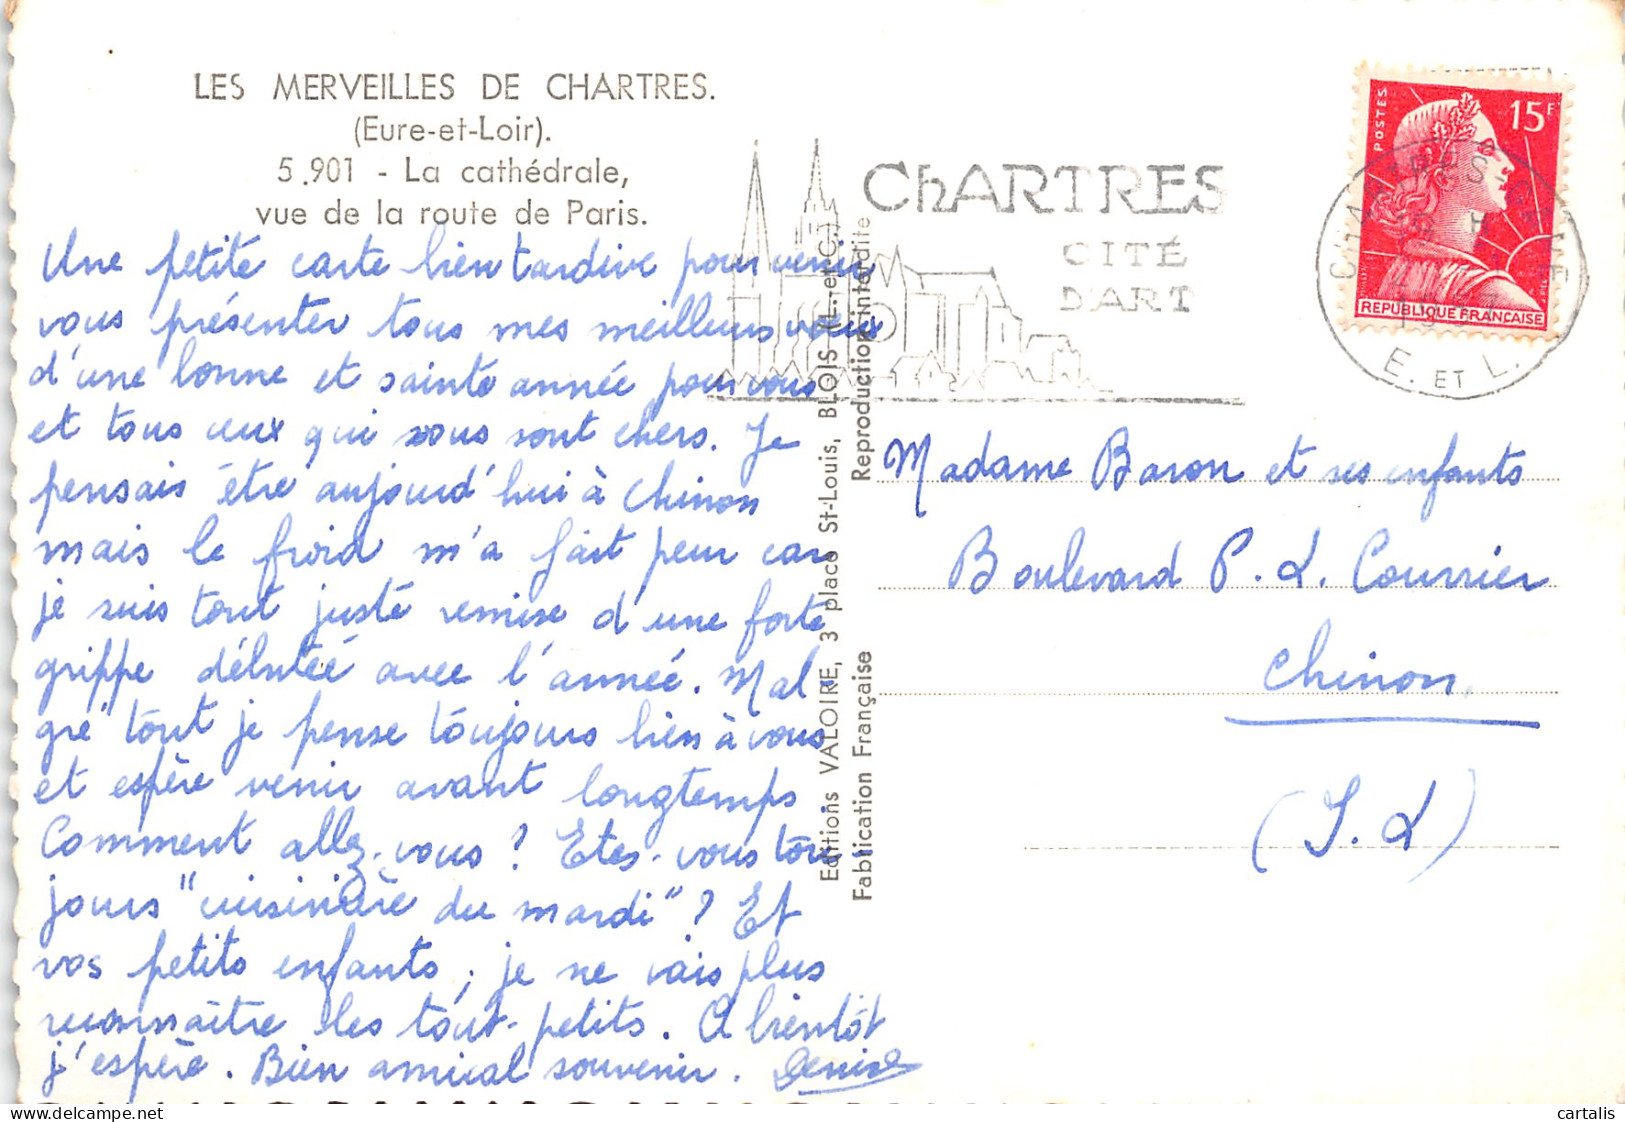 LES MERVEILLES DE CHARTRES.
(Eure-et-Loir).
5.901 - La cathédrale,
vue de la route de Paris.
Une petite carte bien tardive pour venir
vous présenter tous mes meilleurs vœux
d'une bonne et sainte année pour vous
et tous ceux qui vous sont chers. Je
pensais être aujourd'hui à Chinon
mais le froid m'a fait peur car
je suis tout juste remise d'une forte
grippe débutée avec l'année. Mal-
gré tout je pense toujours bien à vous
et espère venir avant longtemps
Comment allez-vous ? Etes-vous tou-
jours "cuisinière du mardi" ? Et
vos petits enfants, je ne vais plus
reconnaître les tout-petits. A bientôt
j'espère. Bien amical souvenir. Denise
Editions VALOIRE, 3 place St-Louis, BLOIS (L.-et-C.)
Fabrication Française
Reproduction interdite
CHARTRES
CITÉ
D'ART
POSTES
15F
REPUBLIQUE FRANÇAISE
E. ET L.
Madame Baron et ses enfants
Boulevard P. L. Courrier
Chinon
(I. L)
cartalis